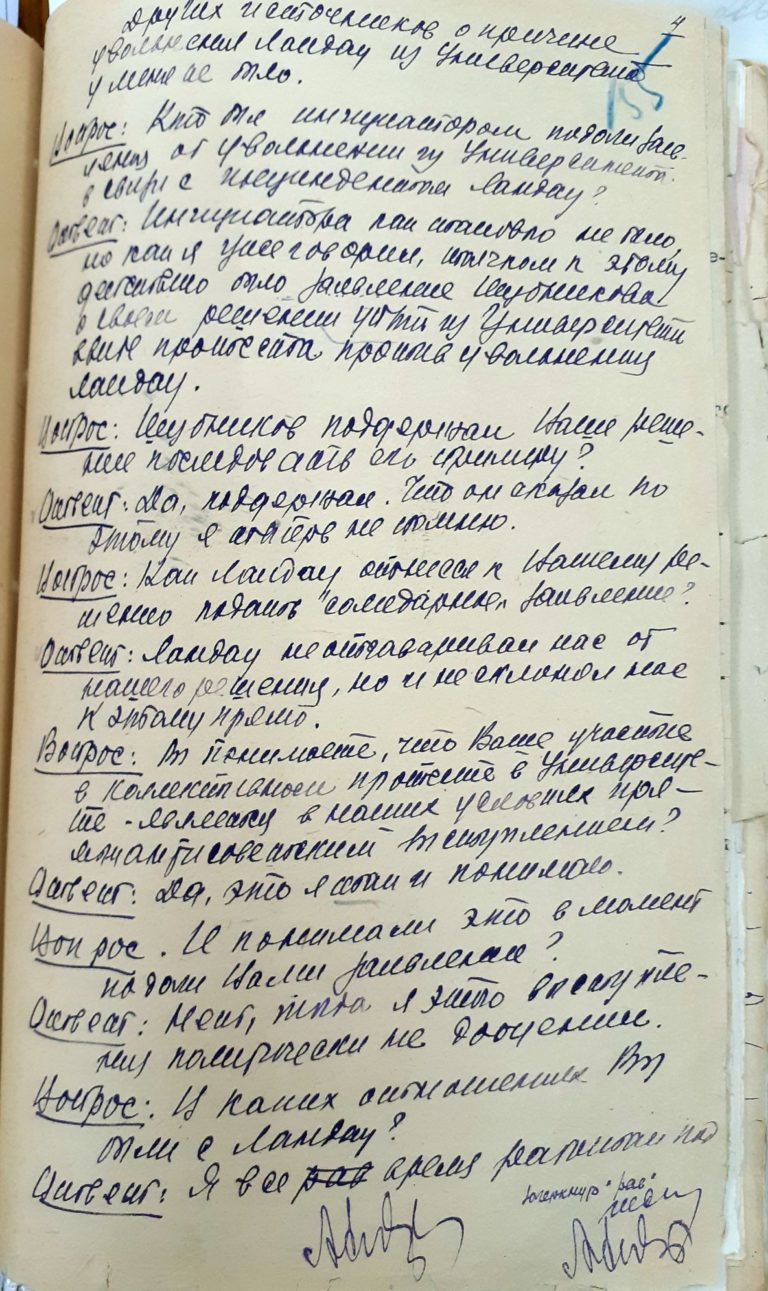 других источников о причине
увольнения Ландау из Университета
у меня не было.
4
Вопрос: Кто был инициатором подачи заяв-
ления от увольнении из Университета
в связи с инциндентом Ландау?
Ответ: Инициатора как такового не было,
но как я уже говорил, толчком к этому
действию было заявление Шубникова
о своем решении уйти из Университета
ввиде протеста против увольнения
Ландау.
Вопрос: Шубников поддержал Ваше реше-
ние последовать его примеру?
Ответ: Да, поддержал. Что он сказал по
этому я теперь не помню.
Вопрос: Как Ландау отнесся к Вашему ре-
шению подать "солидарное" заявление?
Ответ: Ландау не отговаривал нас от
нашего решения, но и не склонял нас
к этому прямо.
Вопрос: Вы понимаете, что Ваше участие
в коллективном протесте в Университе-
те - является в наших условиях пря-
мым антисоветским выступлением?
Ответ: Да, это я стал и понимаю.
Вопрос. И понимали это в момент
подачи Вами заявления?
Ответ: Нет, тогда я это выступле-
ния политически не дооценил.
Вопрос: В каких отношениях Вы
были с Ландау?
Ответ: Я все раб время работал под
зачеркнуто "раб"